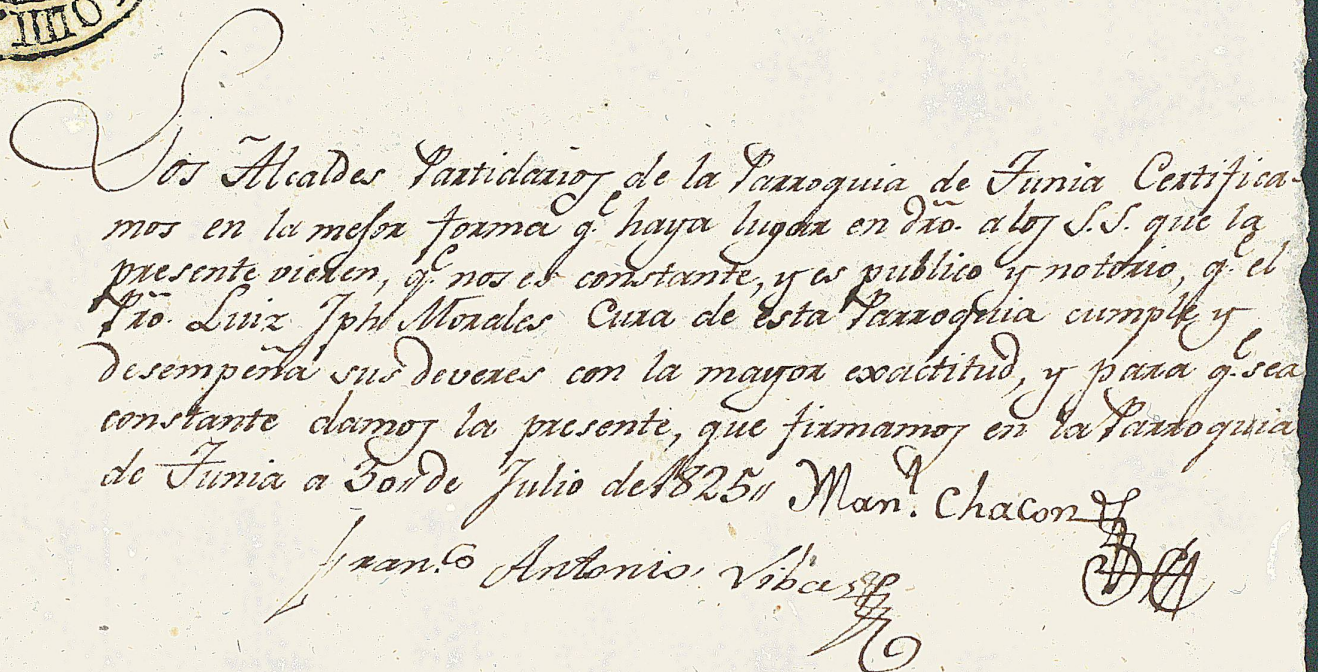 Los Alcaldes Partidarios de la Parroquia de Funia Certifica-
mos en la mejor forma q.e haya lugar en dr̃o. a los S.S. que la
presente vieren, q.e nos es constante, y es publico y notorio, q.e el
Pr̃o. Luiz Jph Morales Cura de esta Parroquia cumple y
desempeña sus deveres con la mayor exactitud, y para q.e sea
constante damos la presente, que firmamos en la Parroquia
de Funia a 30,, de Julio de 1825,, Man.l Chacon
Fran.co Antonio Vibas